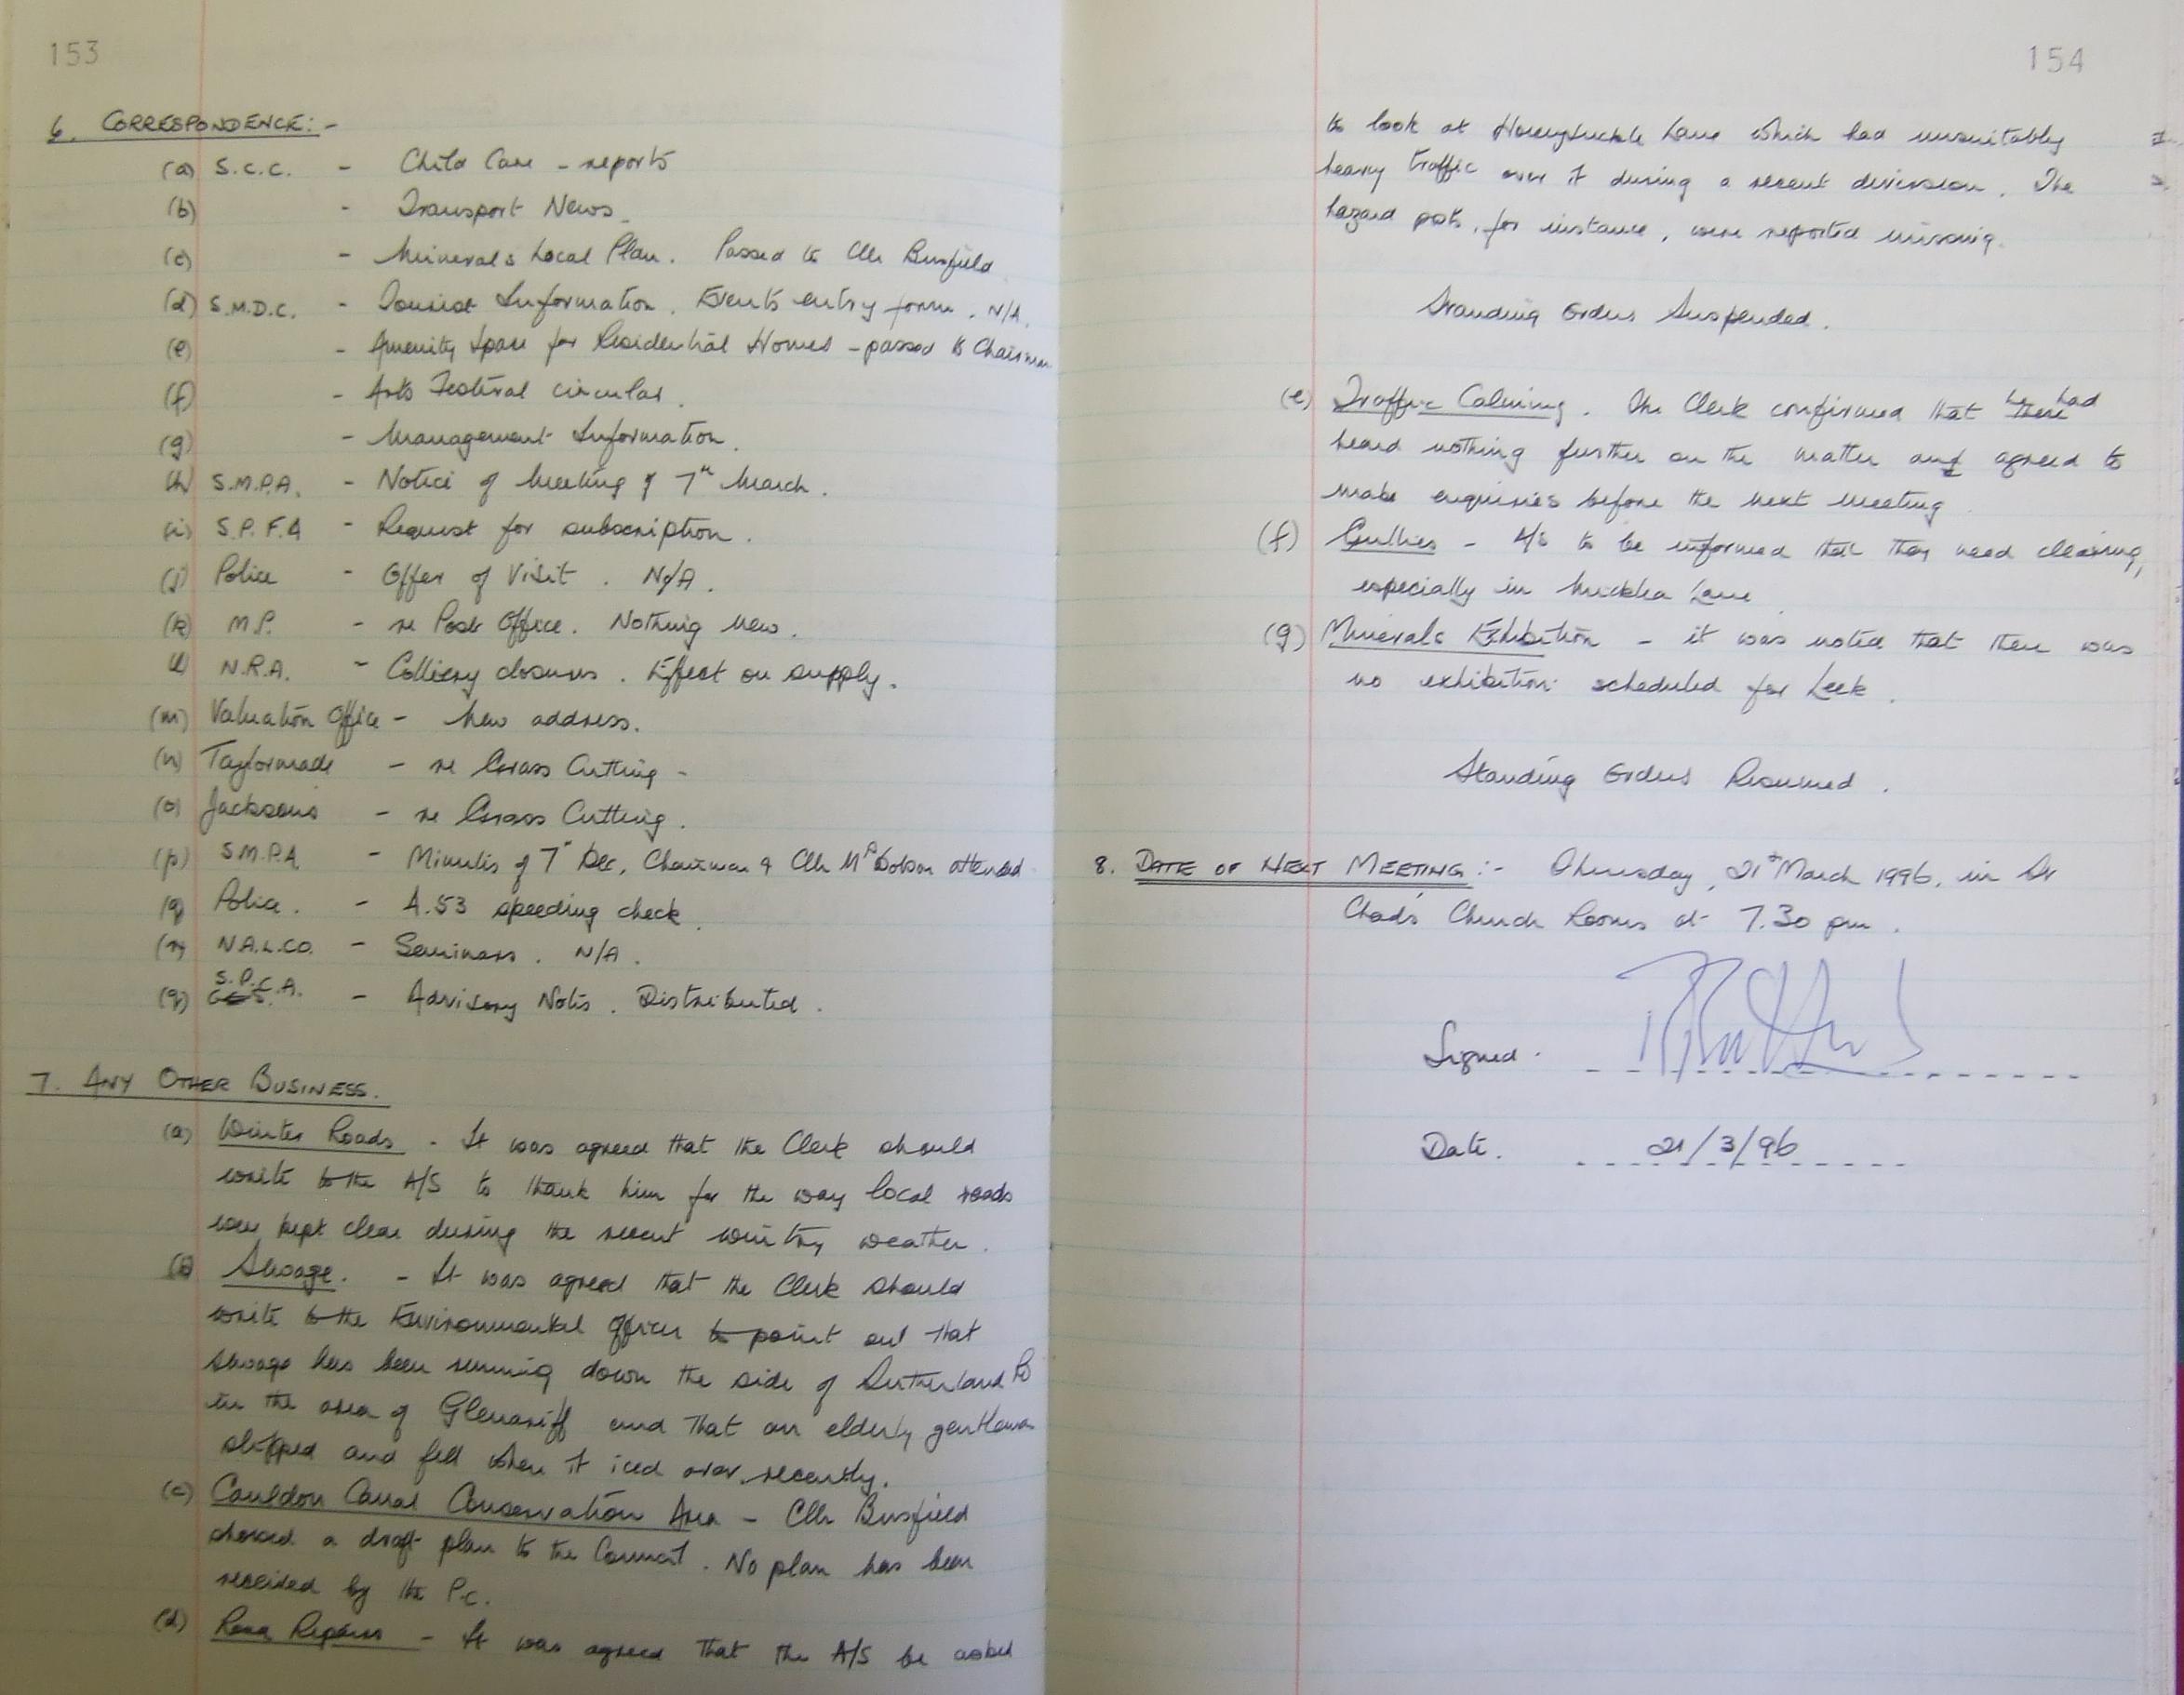 153
6. CORRESPONDENCE:-
(a) S.C.C. - Child Care - reports
(b) - Transport News.
(c) - Minerals Local Plan. Passed to Cllr Busfield
(d) S.M.D.C. - Tourist Information. Events entry form. N/A.
(e) - Amenity Space for Residential Homes - passed to Chairman
(f) - Arts Festival circular.
(g) - Management Information.
(h) S.M.P.A. - Notice of Meeting of 7th March.
(i) S.P.F.A - Request for subscription.
(j) Police - Offer of Visit. N/A.
(k) M.P. - re Post Office. Nothing new.
(l) N.R.A. - Colliery closures. Effect on supply.
(m) Valuation Office - New address.
(n) Taylormade - re Grass Cutting -
(o) Jacksons - re Grass Cutting.
(p) S.M.P.A - Minutes of 7th Dec, Chairman & Cllr Mrs Dobson attended
(q) Police. - A.53 speeding check.
(r) N.A.L.CO. - Seminars. N/A.
(q) S.P.C.A. - Advisory Notes. Distributed.
7. ANY OTHER BUSINESS.
(a) Winter Roads - It was agreed that the Clerk should
write to the A/S to thank him for the way local roads
were kept clear during the recent wintry weather.
(b) Sewage. - It was agreed that the Clerk should
write to the Environmental Officer to point out that
sewage has been running down the side of Sutherland Rd
in the area of Glenariff and that an elderly gentleman
slipped and fell when it iced over recently.
(c) Cauldon Canal Conservation Area - Cllr Busfield
showed a draft plan to the Council. No plan has been
received by the P.C.
(d) Road Repairs - It was agreed that the A/S be asked
154
to look at Honeysuckle Lane which had unsuitably
heavy traffic over it during a recent diversion. The
hazard posts, for instance, were reported missing.
Standing Orders Suspended.
(e) Traffic Calming. The Clerk confirmed that he had
heard nothing further on the matter and agreed to
make enquiries before the next meeting
(f) Gullies - A/S to be informed that they need cleaning,
especially in Lane
(g) Minerals Exhibition - it was noted that there was
no exhibition scheduled for Leek.
Standing Orders Resumed.
8. DATE OF NEXT MEETING:- Thursday, 21st March 1996, in St
Chad's Church Rooms at 7.30 pm.
Signed.
Date. 21/3/96